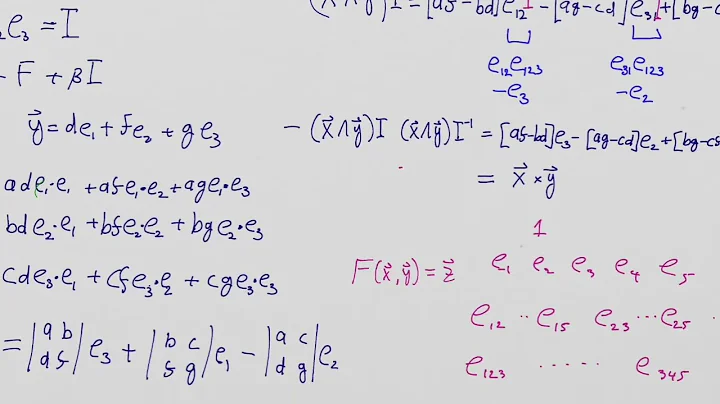 ₂e₃ = I
- F + βI
y⃗ = de₁ + fe₂ + ge₃
ade₁·e₁ + afe₁·e₂ + age₁·e₃
bde₂·e₁ + bfe₂·e₂ + bge₂·e₃
cde₃·e₁ + cfe₃·e₂ + cge₃·e₃
= |a b| e₃ + |b c| e₁ - |a c| e₂
|d f| |f g| |d g|
(x⃗∧y⃗)I = [af-bd]e₁₂I - [ag-cd]e₃₁I + [bg-c
e₁₂e₁₂₃ e₃₁e₁₂₃
-e₃ -e₂
- (x⃗∧y⃗)I (x⃗∧y⃗)I⁻¹ = [af-bd]e₃ - [ag-cd]e₂ + [bg-cf
= x⃗ × y⃗
1
F(x⃗,y⃗) = z⃗ e₁ e₂ e₃ e₄ e₅
e₁₂ ·· e₁₅ e₂₃ ··· e₂₅
e₁₂₃ ····· e₃₄₅